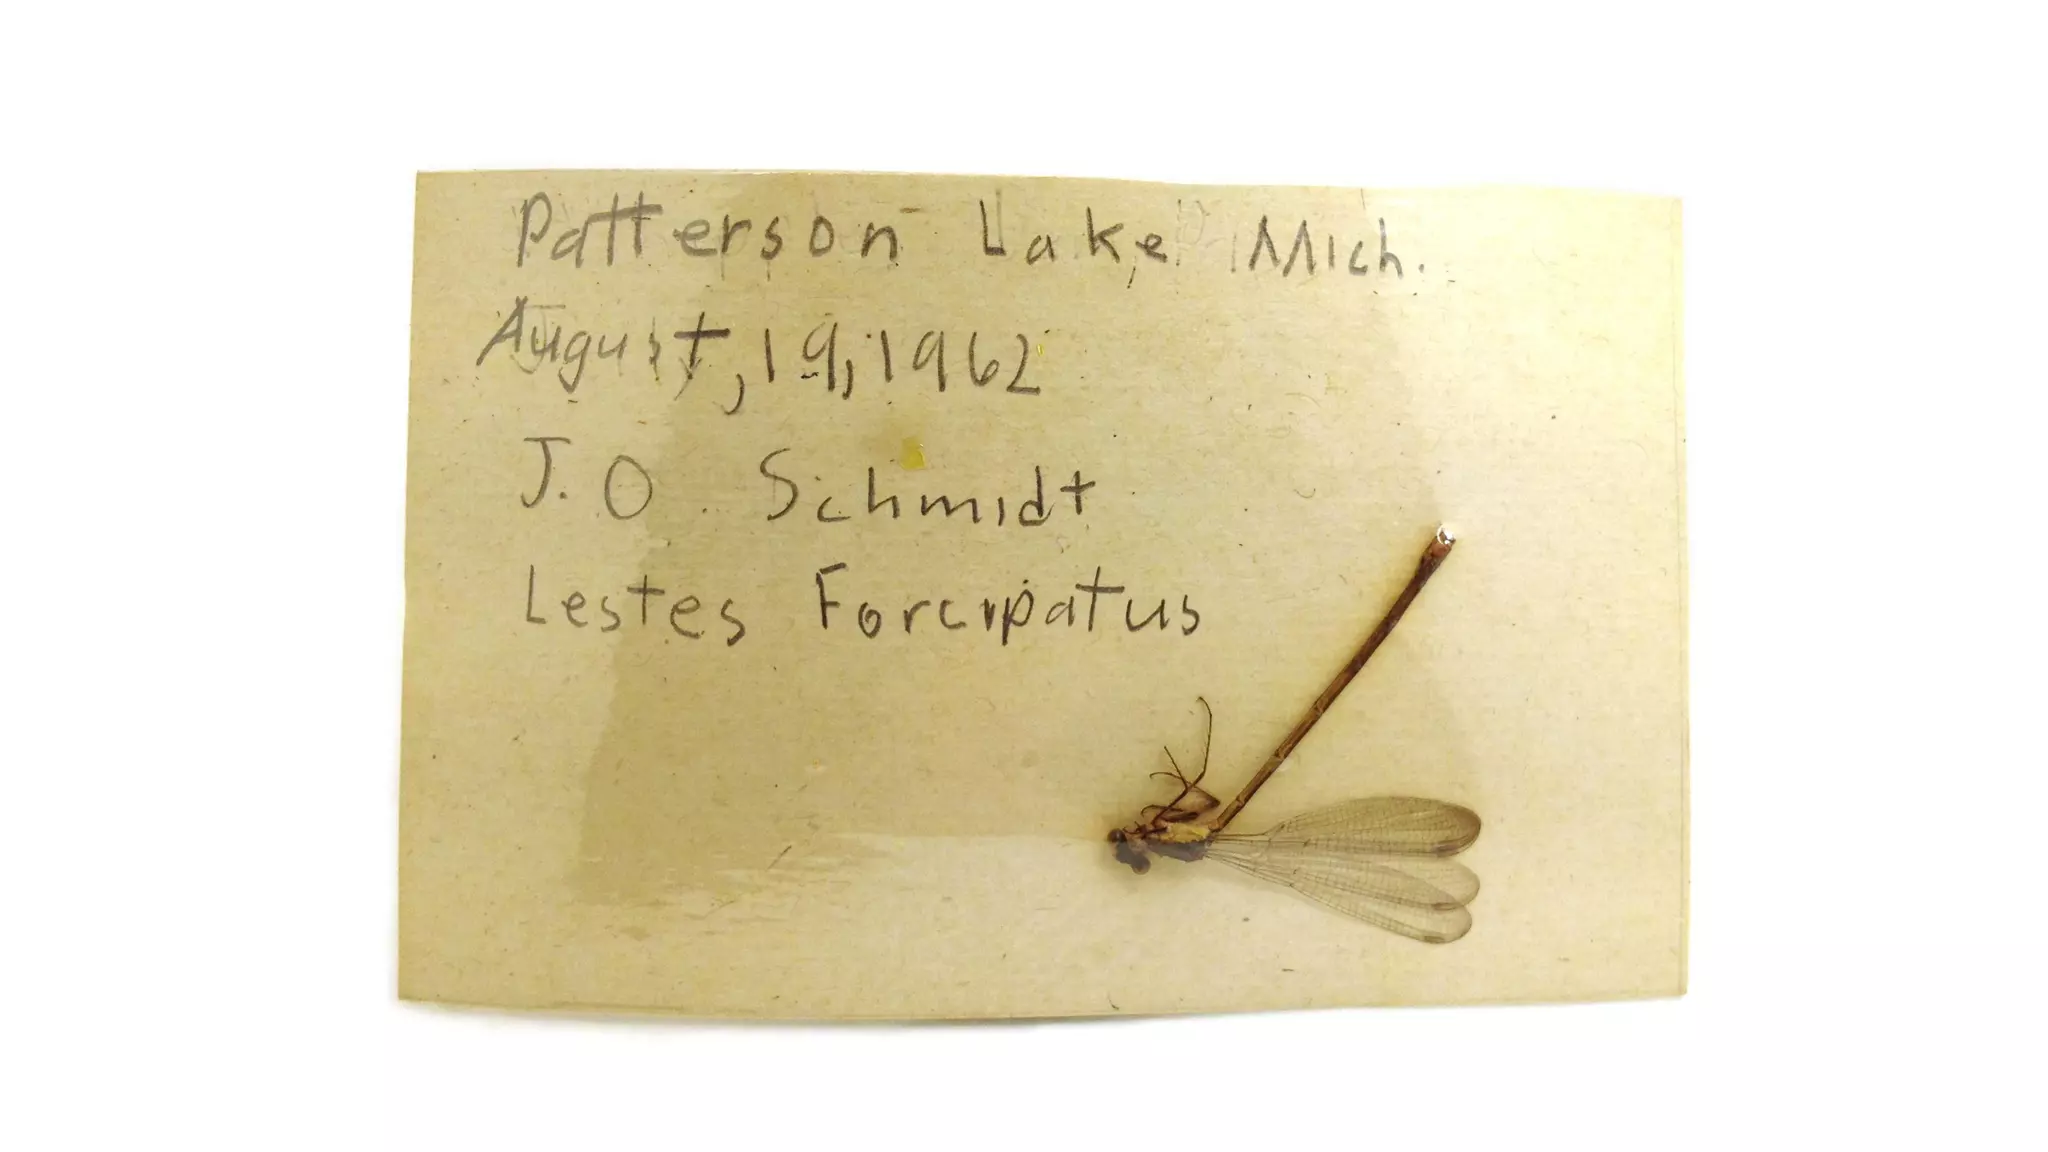 Patterson Lake Mich.
August, 19, 1962
J. O Schmidt
Lestes Forcipatus